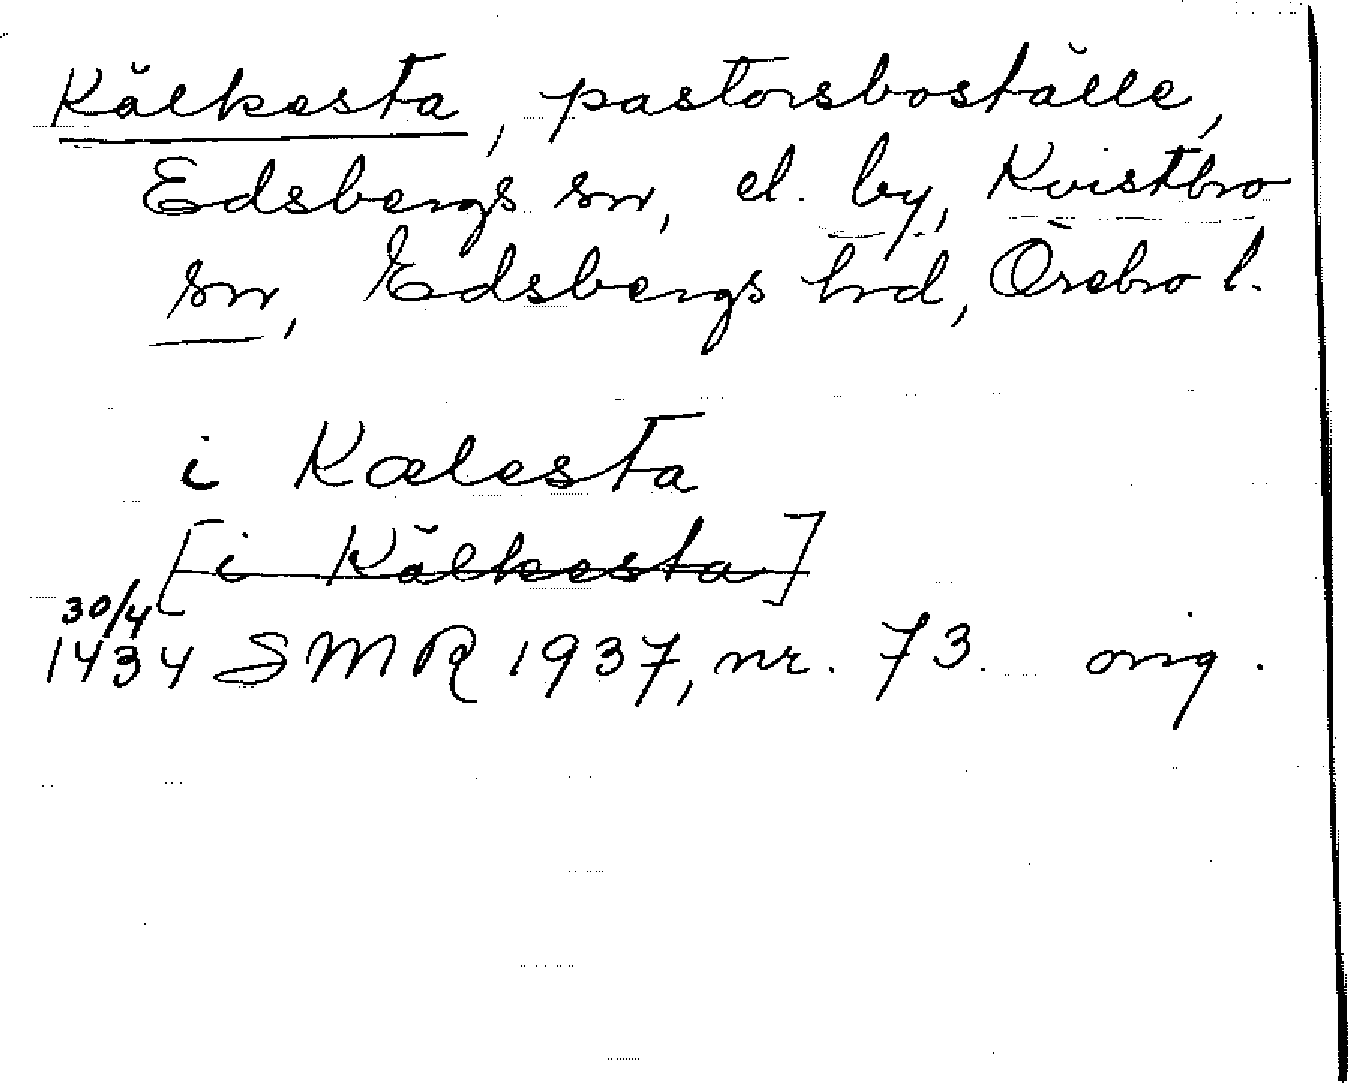 Kälkesta, pastorsboställe,
Edsbergs sn, el. by, Kvistbro
sn, Edsbergs hd, Örebro l.
i Kælesta
[i Kälkesta]
30/4
1434 SMR 1937, nr. 73. orig.